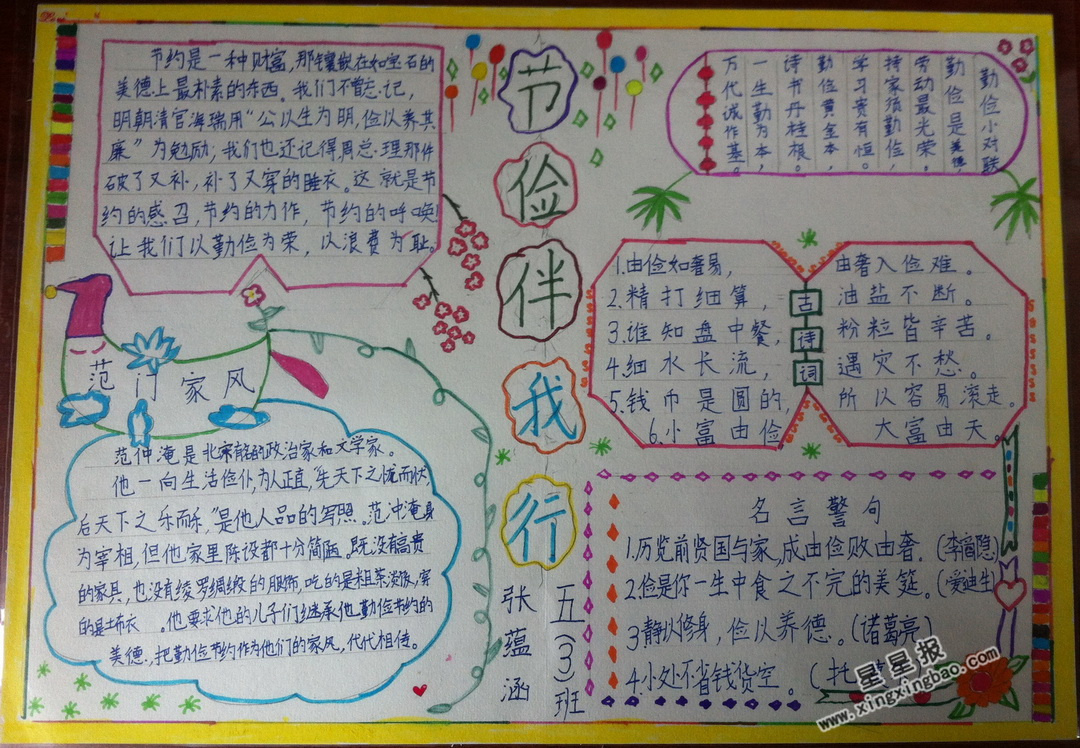 节约是一种财富，那镶嵌在如宝石的
美德上最朴素的东西。我们不曾忘记，
明朝清官海瑞用“公以生为明，俭以养其
廉”为勉励；我们也还记得周总理那件
破了又补，补了又穿的睡衣。这就是节
约的感召，节约的力作，节约的呼唤！
让我们以勤俭为荣，以浪费为耻。
节俭伴我行
勤俭小对联
勤俭是美德，
劳动最光荣。
持家须勤俭，
学习贵有恒。
勤俭黄金本，
诗书丹桂根。
一生勤为本，
万代诚作基。
古诗词
1.由俭如奢易，由奢入俭难。
2.精打细算，油盐不断。
3.谁知盘中餐，粉粒皆辛苦。
4.细水长流，遇灾不愁。
5.钱币是圆的，所以容易滚走。
6.小富由俭，大富由天。
范门家风
范仲淹是北宋的政治家和文学家。
他一向生活俭仆，为人正直，“先天下之忧而忧，
后天下之乐而乐，”是他人品的写照。范冲淹身
为宰相，但他家里陈设都十分简陋。既没有高贵
的家具，也没有绫罗绸缎的服饰，吃的是粗茶淡饭，穿
的是土布衣。他要求他的儿子们继承他勤俭节约的
美德，把勤俭节约作为他们的家风，代代相传。
五(3)班
张蕴涵
名言警句
1.历览前贤国与家，成由俭败由奢。（李商隐）
2.俭是你一生中食之不完的美筵。（爱迪生
3静以修身，俭以养德。（诸葛亮）
4.小处不省钱货空。（托
星星报
www.xingxingbao.com